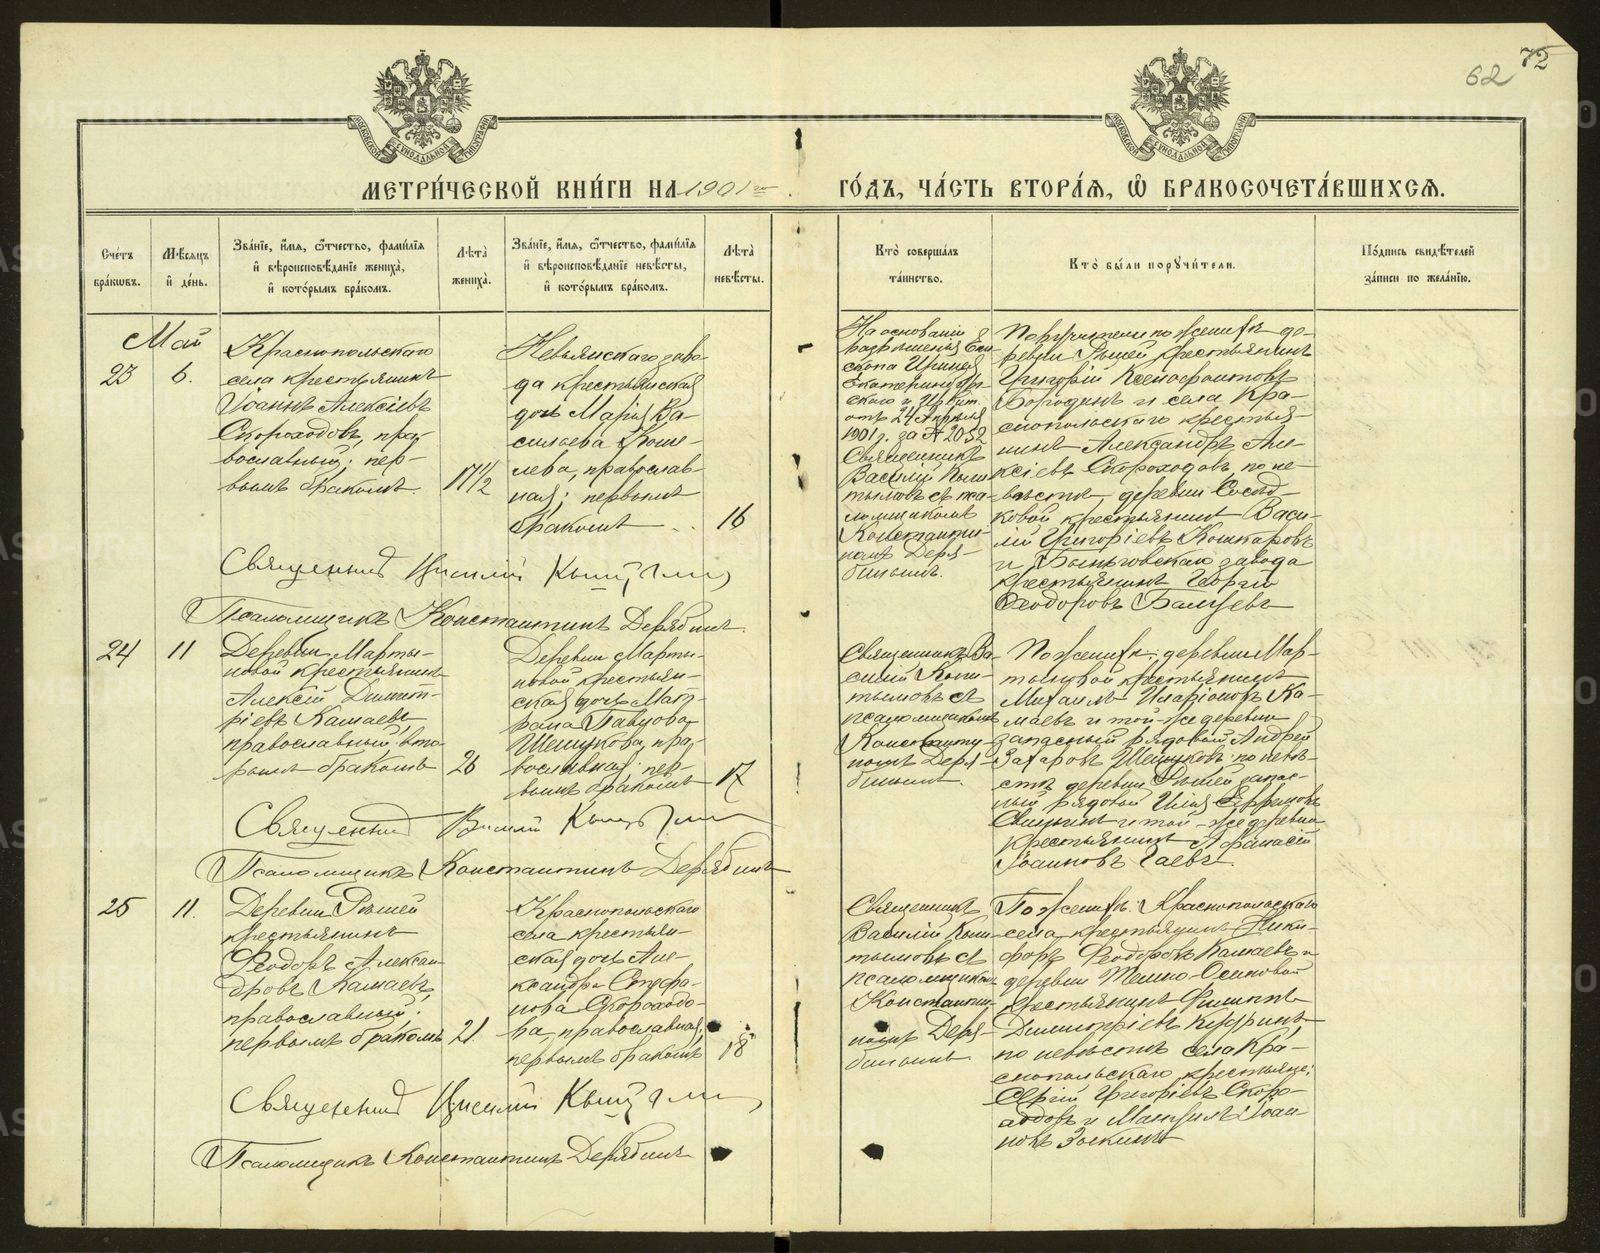 62
72
МЕТРИ́ЧЕСКОЙ КНИ́ГИ НА 1901 го
ГО́ДЪ, ЧА́СТЬ ВТОРА́Я, Ѽ БРАКОСОЧЕТА́ВШИХСЯ.
Сче́тъ
бра́кѡвъ.
Мѣ́сяцъ
и҆ де́нь.
Зва́нїе, и҆́мя, ѻ҆́тчество, фами́лїя
и҆ вѣроисповѣ́данїе жениха̀,
и҆ кото́рымъ бра́комъ.
Лѣ́та̀
жениха̀.
Зва́нїе, и҆́мя, ѻ҆́тчество, фами́лїя
и҆ вѣроисповѣ́данїе невѣ́сты,
и҆ кото́рымъ бра́комъ.
Лѣ́та̀
невѣ́сты.
Кто̀ соверша́лъ
та́инство.
Кто̀ бы́ли порꙋчи́тели.
По́дпись свидѣ́телей
за́писи по жела́нїю.
Май
23
6.
Краснопольскаго
села крестьянинъ
Іоаннъ Алексіевъ
Скороходовъ, пра-
вославный; пер-
вымъ бракомъ.
17 1/2
Невьянскаго заво-
да крестьянская
дочь Марія Ва-
сильева Коше-
лева, православ-
ная; первымъ
бракомъ
16
На основаніи
разрѣшенія Епи-
скопа Иринея
Екатеринбур-
скаго и Ирбит.
отъ 24 Апрѣля
1901 г. за № 2052
Священникъ
Василій Кыш-
тымовъ съ пса-
ломщикомъ
Константи-
номъ Деря-
бинымъ.
Поручители по женихѣ де-
ревни Рѣшей крестьянинъ
Григорій Ксенофонтовъ
Бородинъ и села Кра-
снопольскаго крестья-
нинъ Александръ Але-
ксіевъ Скороходовъ, по не-
вѣстѣ деревни Сосѣд-
ковой крестьянинъ Васи-
лій Григоріевъ Кошкаровъ
и Быньговскаго завода
крестьянинъ Георгій
Ѳеодоровъ
Священникъ Василій Кыштымовъ
Псаломщикъ Константинъ Дерябинъ.
24
11
Деревни Марты-
новой крестьянинъ
Алексій Димит-
ріевъ Камаевъ
православный, вто-
рымъ бракомъ
26
Деревни Марты-
новой крестьян-
ская дочь Мат-
рона Павлова
Шешукова, пра-
вославная; пер-
вымъ бракомъ
17
Священникъ Ва-
силій Кыш-
тымовъ съ
псаломщикомъ
Константи-
номъ Деря-
бинымъ.
По женихѣ: деревни Мар-
тыновой крестьянинъ
Михаилъ Иларіоновъ Ка-
маевъ и той-же деревни
запасный рядовой Андрей
Захаровъ Шешуковъ; по невѣ-
стѣ деревни Рѣшей запас-
ный рядовой Илія Ефремовъ
и той-же деревни
крестьянинъ Афанасій
Іоанновъ Гаевъ.
Священникъ Василій Кыштымовъ
Псаломщикъ Константинъ Дерябинъ
25
11.
Деревни Рѣшей
крестьянинъ
Ѳеодоръ Алексан-
дровъ Камаевъ,
православный;
первымъ бракомъ
21.
Краснопольскаго
села крестьян-
ская дочь Але-
ксандра Стефа-
нова Скороходо-
ва, православная;
первымъ бракомъ
18
Священникъ
Василій Кыш-
тымовъ съ
псаломщикомъ
Константи-
номъ Деря-
бинымъ
По женихѣ: Краснопольскаго
села крестьянинъ Ники-
форъ Ѳеодоровъ Камаевъ и
деревни
крестьянинъ Филиппъ
Димитріевъ
по невѣстѣ села Кра-
снопольскаго крестьяне:
Сергій Григоріевъ Скоро-
ходовъ и Іоан-
новъ Зыкинъ
Священникъ Василій Кыштымовъ
Псаломщикъ Константинъ Дерябинъ